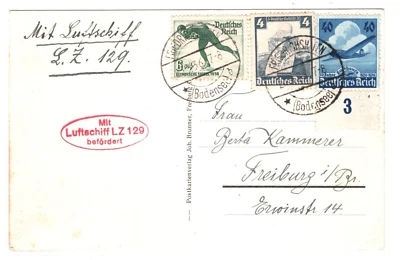 Mit Luftschiff
L.Z. 129.
Deutsches
Reich
6
4
Deutsches Reich
40 40
Deutsches Reich
(Bodensee)
(Bodensee)
3
Mit
Luftschiff LZ 129
befördert
Postkartenverlag Joh. Brunner
Frau
Berta Kammerer
Freiburg i/Br.
Erwinstr 14